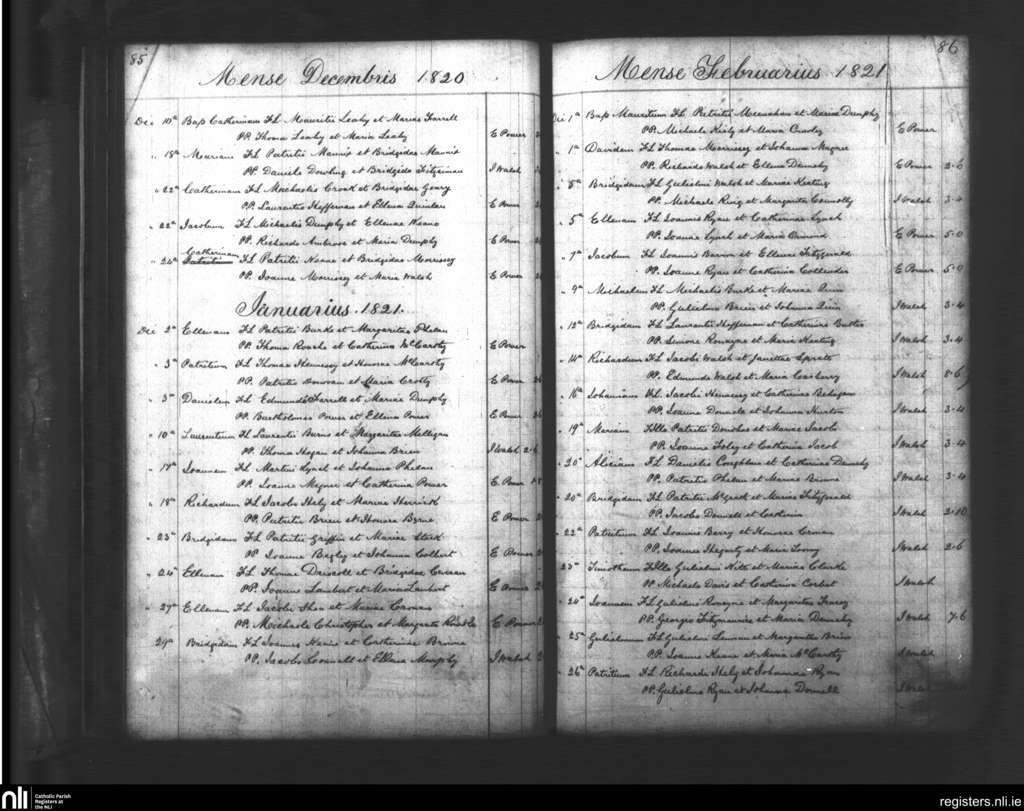 85
Mense Decembris 1820
Dec 10a Bap Catherinam FL Mauritii Leahy et Mariae Farrell
PP. Thoma Leahy et Maria Leahy E Power
" 18a Mariam FL Patritii Mannix et Bridgidae Mannix
PP. Daniele Dowling et Bridgida Fitzgerman I Walsh
" 22a Catherinam FL Michaelis Croak et Bridgidae Geary
PP. Laurentio Heffernan et Ellena Quinlan E Power
" 22a Jacobum FL Michaelis Dunphy et Ellenae Keane
PP. Richardo Ambrose et Maria Dunphy E Power
Catherinam
" 24a Patritium FL Patritii Neane et Bridgidae Morrissey
PP. Joanne Morrissey et Maria Walsh E Power
Januarius 1821
Dec 2a Ellenam FL Patritii Burke et Margaritae Phelan
PP. Thoma Roach et Catherina McCarthy E Power
" 3a Patritium FL Thomae Hennessy et Honorae McCarthy
PP. Patritio Donovan et Maria Crotty E Power
" 3a Danielem FL Edmundi Farrell et Mariae Dunphy
PP. Bartholomeo Power et Ellena Power E Power
" 10a Laurentium FL Laurentii Burns et Margaritae Milligan
PP. Thoma Hogan et Johanna Brien I Walsh 2-6
" 17a Joannem FL Martini Lynch et Johanna Phelan
PP. Joanne Magner et Catherina Power E Power
" 18a Richardum FL Jacobi Hely et Mariae Herrick
PP. Patritio Brien et Honora Byrne E Power
" 23a Bridgidam FL Patritii Griffin et Mariae
PP Joanne Begley et Johanna Colbert E Power
" 24a Ellenam FL Thomae Driscoll et Bridgidae Curran
PP. Joanne Lambert et Maria Lambert E Power
" 27a Ellenam FL Jacobi Shea et Mariae Cronan
PP. Michaele Christopher et Margarita E Power
29a Bridgidam FL Joannis Haire et Catherinae Browne
PP. Jacobo Connell et Ellena Murphy I Walsh
86
Mense Februarius 1821
1a Bap Mauritium FL Patritii Monahan et Mariae Dunphy
PP. Michaele Kiely et Maria Crowley E Power
" 1a Davidem FL Thomae Morrissey et Johanna Magner
PP. Richardo Walsh et Ellena Dempsey E Power 2-6
5a Bridgidam FL Gulielmi Walsh et Mariae Keating
PP. Michaele Ruig et Margarita Connolly I Walsh 3-4
" 5a Ellenam FL Joannis Ryan et Catherinae Lynch
PP. Joanne Lynch et Maria Ormond E Power 5-0
" 7a Jacobum FL Joannis Barron et Ellenae Fitzgerald
PP. Joanne Ryan et Catherina Collender E Power 5-0
" 9a Michaelem FL Michaelis Burke et Mariae Quin
PP. Gulielmo Brien et Johanna Quin I Walsh 3-4
" 12a Bridgidam FL Laurentii Heffernan et Catherinae Butler
PP. Simone Ronayne et Maria Keating I Walsh 3-4
" 14a Richardum FL Jacobi Walsh et Janettae Spratt
PP. Edmundo Walsh et Maria Casberry I Walsh 8-6
" 16a Johannam FL Jacobi Hennessy et Catherinae
PP. Joanne Donnelo et Johanna I Walsh 3-4
" 19a Mariam Filla Patritii Donohue et Mariae Jacob
PP. Joanne Foley et Catherina Jacob I Walsh 3-4
" 20a Aliciam FL Danielis Coughlan et Catherinae Dempsey
PP. Patritio Phelan et Maria Browne I Walsh 3-4
" 20a Bridgidam FL Patritii McGrath et Mariae Fitzgerald
PP. Jacobo Donnell et Catherina I Walsh 2-10
" 22a Patritium FL Joannis Berry et Honorae Cronan
PP. Joanne Hegarty et Maria Looney I Walsh 2-6
23a Timotheum Filla Gulielmi Nilts et Mariae Clarke
PP Michaele Davis et Catherina Corbet I Walsh
" 24a Joannem FL Gulielmi Ronayne et Margaritae Tracey
PP. Georgio Fitzmaurice et Maria Dempsey I Walsh 7-6
" 25 Gulielmum FL Gulielmi Lannan et Margaritae Brien
PP. Joanne Keane et Maria McCarthy I Walsh
" 26a Patritium FL Richardi Hely et Johannae Ryan
PP. Gulielmo Ryan et Johanna Donnell I Walsh
nli Catholic Parish
Registers at
the NLI
registers.nli.ie